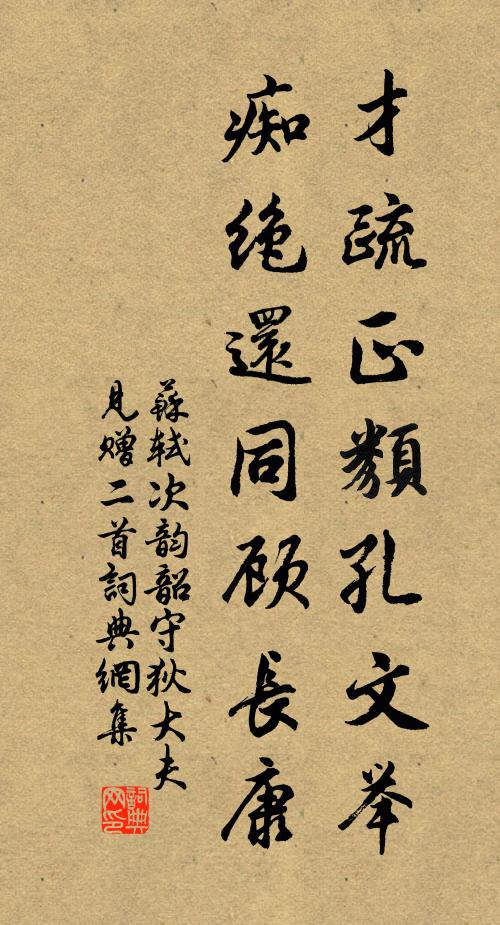 才疏正類孔文举
痴绝還同顾長康
蘇軾次韵韶守狄大夫
見赠二首詞典網集
詞典
网印